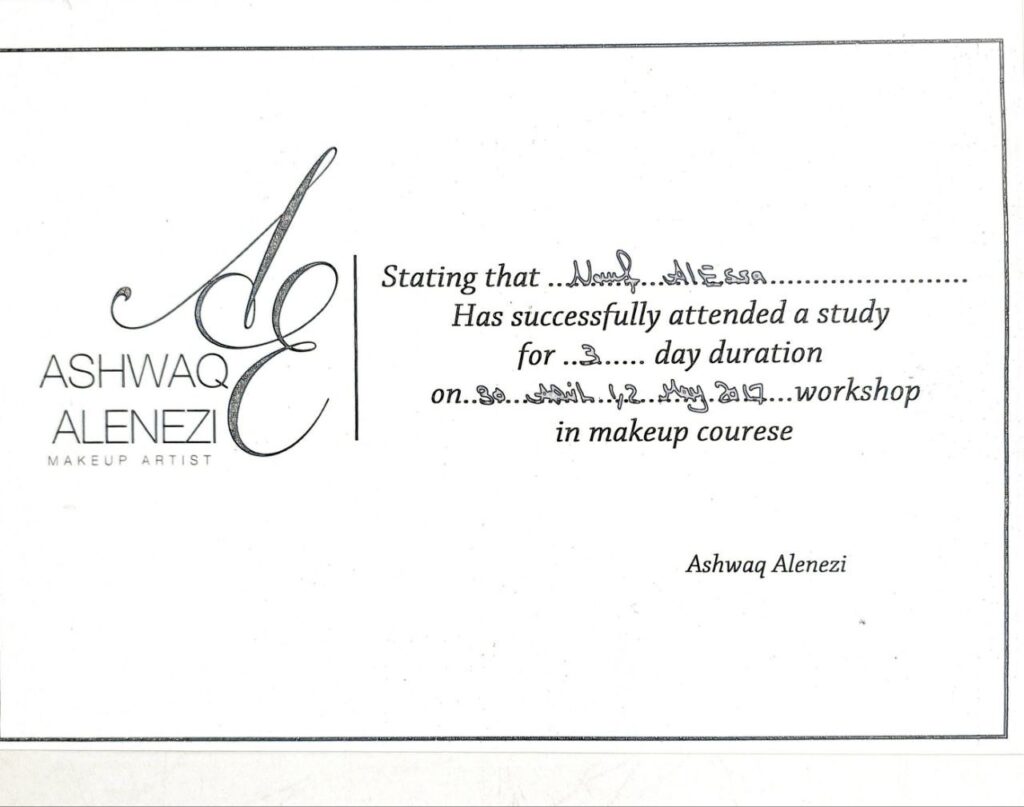 ASHWAQ
ALENEZI
MAKEUP ARTIST
Stating that ...Nouf...AlEssa.......................
Has successfully attended a study
for ..3..... day duration
on..30...April...1,2...May..2017...workshop
in makeup courese
Ashwaq Alenezi